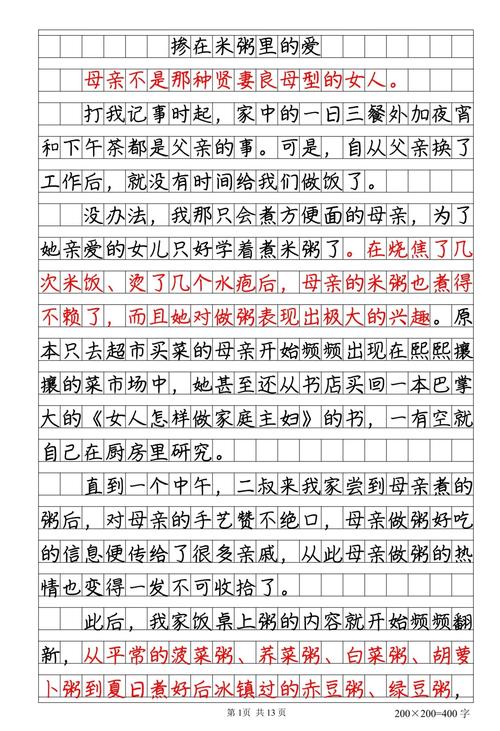 掺在米粥里的爱
母亲不是那种贤妻良母型的女人。
打我记事时起，家中的一日三餐外加夜宵
和下午茶都是父亲的事。可是，自从父亲换了
工作后，就没有时间给我们做饭了。
没办法，我那只会煮方便面的母亲，为了
她亲爱的女儿只好学着煮米粥了。在烧焦了几
次米饭、烫了几个水疱后，母亲的米粥也煮得
不赖了，而且她对做粥表现出极大的兴趣。原
本只去超市买菜的母亲开始频频出现在熙熙攘
攘的菜市场中，她甚至还从书店买回一本巴掌
大的《女人怎样做家庭主妇》的书，一有空就
自己在厨房里研究。
直到一个中午，二叔来我家尝到母亲煮的
粥后，对母亲的手艺赞不绝口，母亲做粥好吃
的信息便传给了很多亲戚，从此母亲做粥的热
情也变得一发不可收拾了。
此后，我家饭桌上粥的内容就开始频频翻
新，从平常的菠菜粥、荠菜粥、白菜粥、胡萝
卜粥到夏日煮好后冰镇过的赤豆粥、绿豆粥，
第1页 共13页
200×200=400 字